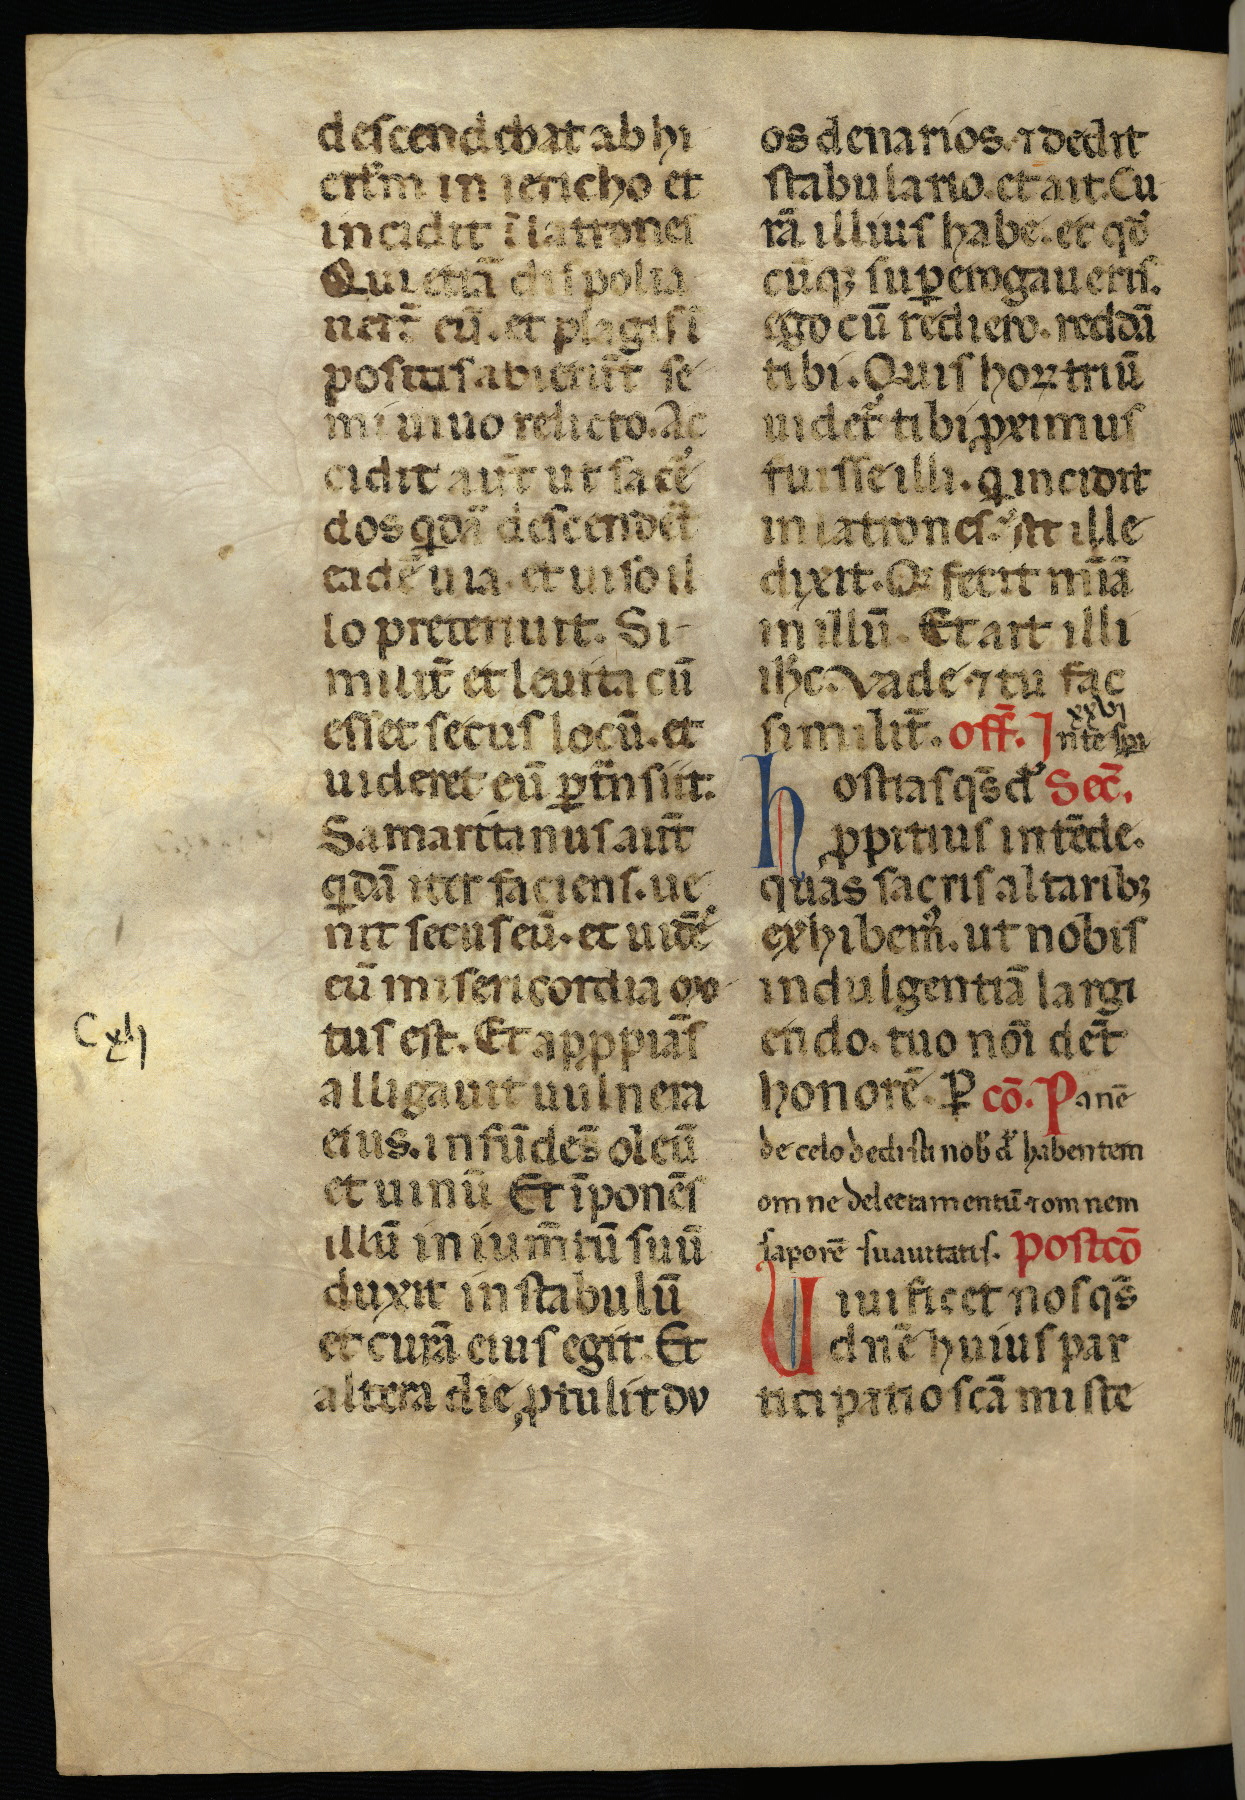 descendebat ab hi
erl̄m in iericho et
incidit ī latrones
Qui etiā dispolia
uert̄ eū. et plagis ī
positis abierūt se
mi uiuo relicto. Ac
cidit aut̄ ut sacer
dos qdā descenderet
eadē uia. et uiso il
lo preteriuit. Si-
milit̄ et leuita cū
esset secus locū. et
uideret eū ꝑtn̄siit:
Samaritanus aut̄
qdā iter faciens. ue
nit secus eū. et uidē
eū misericordia mo
tus est. Et apꝓpiās
alligauit uulnera
eius. infūdēs oleū
et uinū Et īponēs
illū in iumt̄ū suū
duxit in stabulū
et curā eius egit. Et
altera die ꝓtulit du
Cxlj
os denarios. ⁊ dedit
stabulario. et ait. Cu
rā illius habe. et qd̄
cūqꝫ suꝑerogaueris.
ego cū rediero. reddā
tibi. Quis hoꝝ triū
uidet̄ tibi ꝓximus
fuisse illi. q̇ incidit
in latrones. At ille
dixit. Qi fecit mīā
in illū. Et ait illi
ihc̄. Vade ⁊ tu fac
similit̄. off̄. Inte spi
xxvj
hostias qs̄ d̄ Sec̄.
ꝓpitius intēde.
quas sacris altaribꝫ
exhibem᷒. ut nobis
indulgentiā largi
endo. tuo nōi det̄
honorē. ꝑ cō. Panē
de celo dedisti nob̄ d̄ habentem
omne delectamentū ⁊ omnem
saporē suauitatis. postcō
Uiuificet nos qs̄
dn̄e huius par
ticipatio scā miste